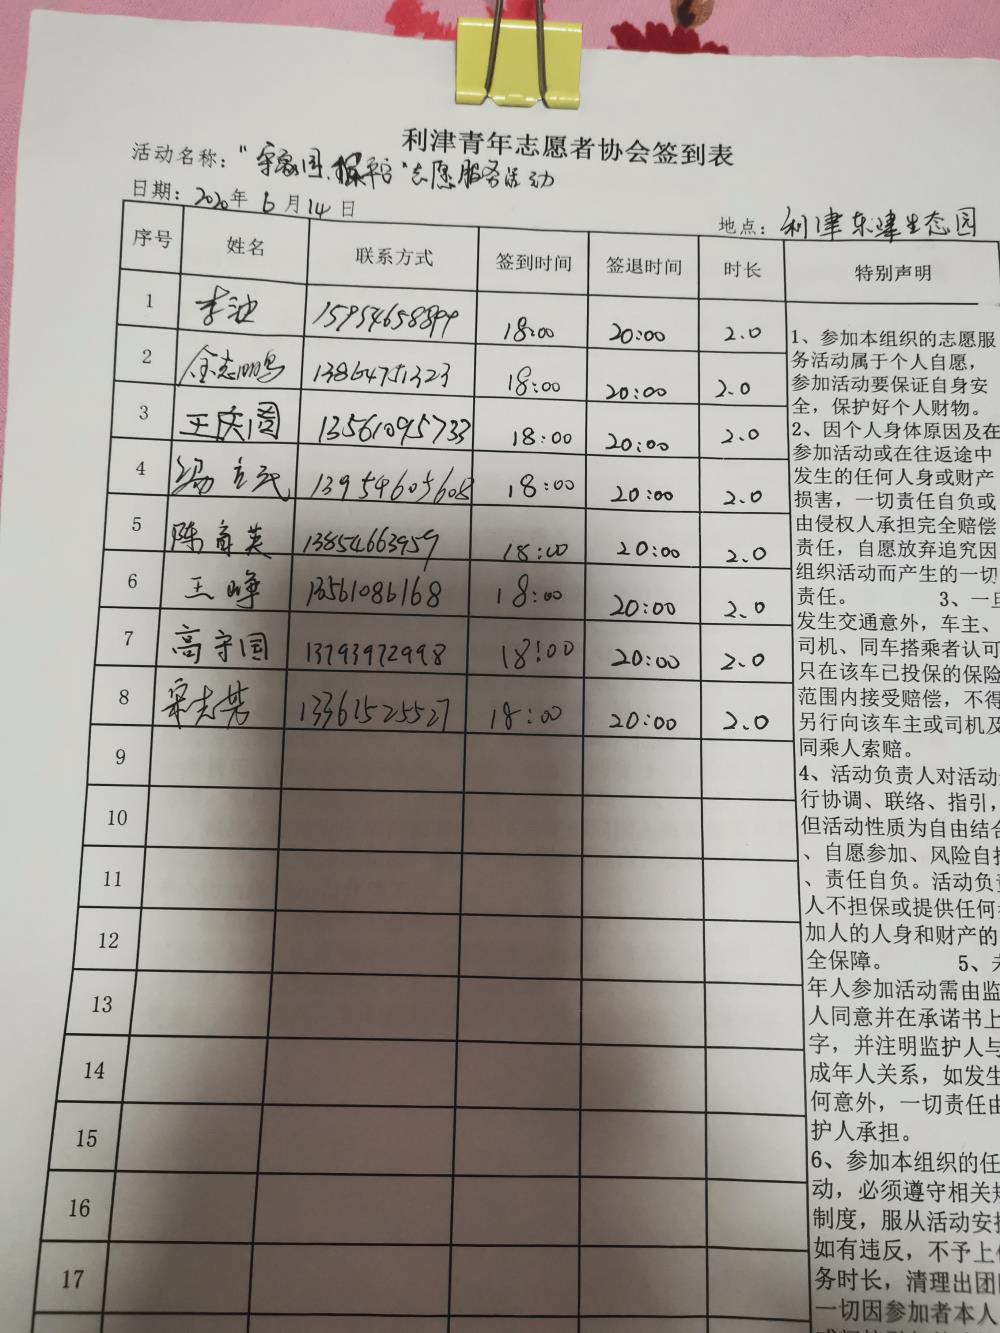 利津青年志愿者协会签到表
活动名称："守家园、保平安"志愿服务活动
日期：2020年6月14日
地点：利津东津生态园
序号 姓名 联系方式 签到时间 签退时间 时长 特别声明
1 李池 15954658899 18:00 20:00 2.0
2 金志鸣 13864751323 18:00 20:00 2.0
3 王庆国 13561095733 18:00 20:00 2.0
4 冯立民 13954605608 18:00 20:00 2.0
5 陈喜英 13854663959 18:00 20:00 2.0
6 王峰 13561086168 18:00 20:00 2.0
7 高守国 13793972998 18:00 20:00 2.0
8 宋志芳 13361525527 18:00 20:00 2.0
9
10
11
12
13
14
15
16
17
1、参加本组织的志愿服
务活动属于个人自愿，
参加活动要保证自身安
全，保护好个人财物。
2、因个人身体原因及在
参加活动或在往返途中
发生的任何人身或财产
损害，一切责任自负或
由侵权人承担完全赔偿
责任，自愿放弃追究因
组织活动而产生的一切
责任。 3、一旦
发生交通意外，车主、
司机、同车搭乘者认可
只在该车已投保的保险
范围内接受赔偿，不得
另行向该车主或司机及
同乘人索赔。
4、活动负责人对活动
行协调、联络、指引，
但活动性质为自由结合
、自愿参加、风险自担
、责任自负。活动负责
人不担保或提供任何
加人的人身和财产的
全保障。 5、未
年人参加活动需由监
人同意并在承诺书上
字，并注明监护人与
成年人关系，如发生
何意外，一切责任由
护人承担。
6、参加本组织的任
动，必须遵守相关规
制度，服从活动安排
如有违反，不予上
务时长，清理出团
一切因参加者本人